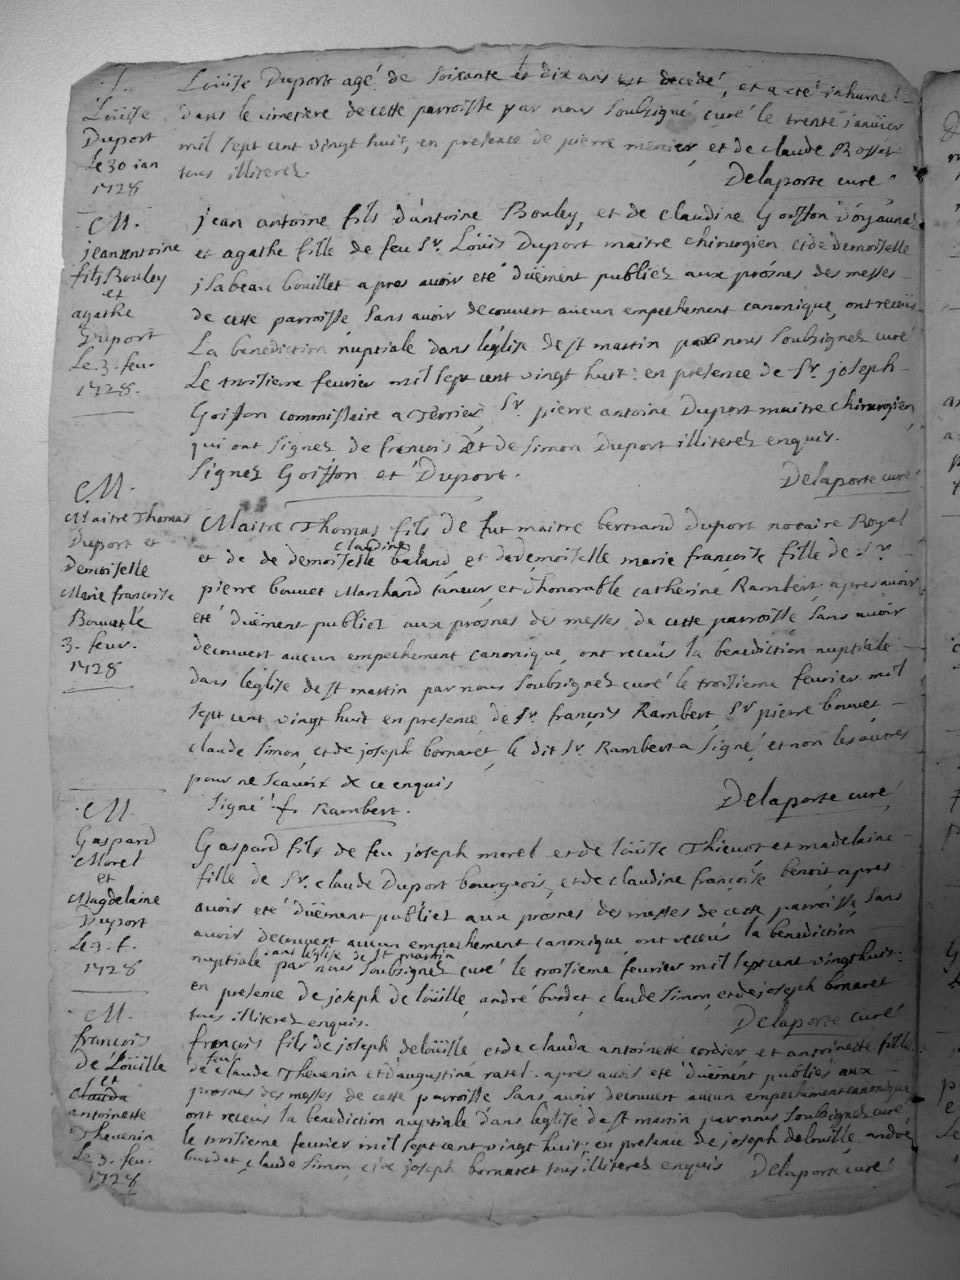 .†.
Loüise
Duport
Le 30 ian
1728
Loüise Duport agé de soixante et dix ans est decedé, et a eté inhumé
dans le cimetiere de cette parroisse par nous soubsigné curé le trente janüier
mil sept cent vingt huit, en presence de pierre mercier, et de claude Rosset
tous illiterez.
Delaporte curé
.M.
jean antoine
fils Bouley
et
agathe
Duport
Le .3. feu.
1728.
jean antoine fils d'antoine Bouley, et de claudine Goiffon d'oyäuna
et agathe fille de feu Sr. Loüis Duport maitre chirurgien et de demoiselle
jsabeau bouillet apres auoir eté düement publiez aux prosnes des messes
de cette parroisse sans auoir decouvert aucun empechement canonique, ont receüs
La benediction nuptiale dans leglise de st martin par nous soubsignez curé
Le troisieme feurier mil sept cent vingt huit: en presence de Sr. joseph
Goiffon commissaire a Terrier, Sr. pierre antoine Duport maitre chirurgien,
qui ont signez de francois et de simon Duport illiterez enquis.
Signez Goiffon et Duport.
Delaporte curé
.M.
Maitre Thomas
Duport et
demoiselle
Marie francoise
Bouuet le
3. feur.
1728
Maitre Thomas fils de fut maitre bertrand duport notaire Royal
claudine
et de de demoiselle baland, et de demoiselle marie francoise fille de Sr.
pierre bouuet Marchand taneur, et d'honorable catherine Rambert apres auoir
eté düement publiez aux prosnes des messes de cette parroisse sans auoir
decouvert aucun empechement canonique, ont receüs la benediction nuptiale
dans leglise de st martin par nous soubsignez curé le troisieme feurier mil
sept cent vingt huit en presence de Sr. françois Rambert, Sr pierre bouuet
claude simon, et de joseph bornaret, le dit Sr. Rambert a signé, et non les autres
pour ne scauoir de ce enquis
Signé f. Rambert.
Delaporte curé
.M.
Gaspard
Morel
et
Magdelaine
Duport
Le .3. f.
1728
Gaspard fils de feu joseph morel et de loüise Thieuot et madelaine
fille de Sr. claude Duport bourgeois, et de claudine françoise benoit apres
auoir eté düement publiez aux prosnes des messes de cette parroisse sans
auoir decouvert aucun empechement canonique ont receüs la benediction
dans leglise de st martin
nuptiale par nous soubsignez curé le troisieme feurier mil sept cent vingt huit:
en presence de joseph de loüille, andré burdet, claude simon, et de joseph bornaret
tous illiterez enquis.
Delaporte curé
.M.
francois
de Loüille
et
clauda
antoinette
Theuenin
Le .3. feu.
1728
francois fils de joseph deloüille et de clauda antoinette cordier et antoinette fille
feu
de claude Theuenin et d'augustine ratel. apres auoir eté düement publiés aux
prosnes des messes de cette parroisse sans auoir decouvert aucun empechement canonique
ont receüs la benediction nuptiale dans leglise de st martin par nous soubsignez curé
le troisieme feurier mil sept cent vingt huit: en presence de joseph delouille, andré
burdet, claude simon, et de joseph bornaret tous illiterez enquis
Delaporte curé